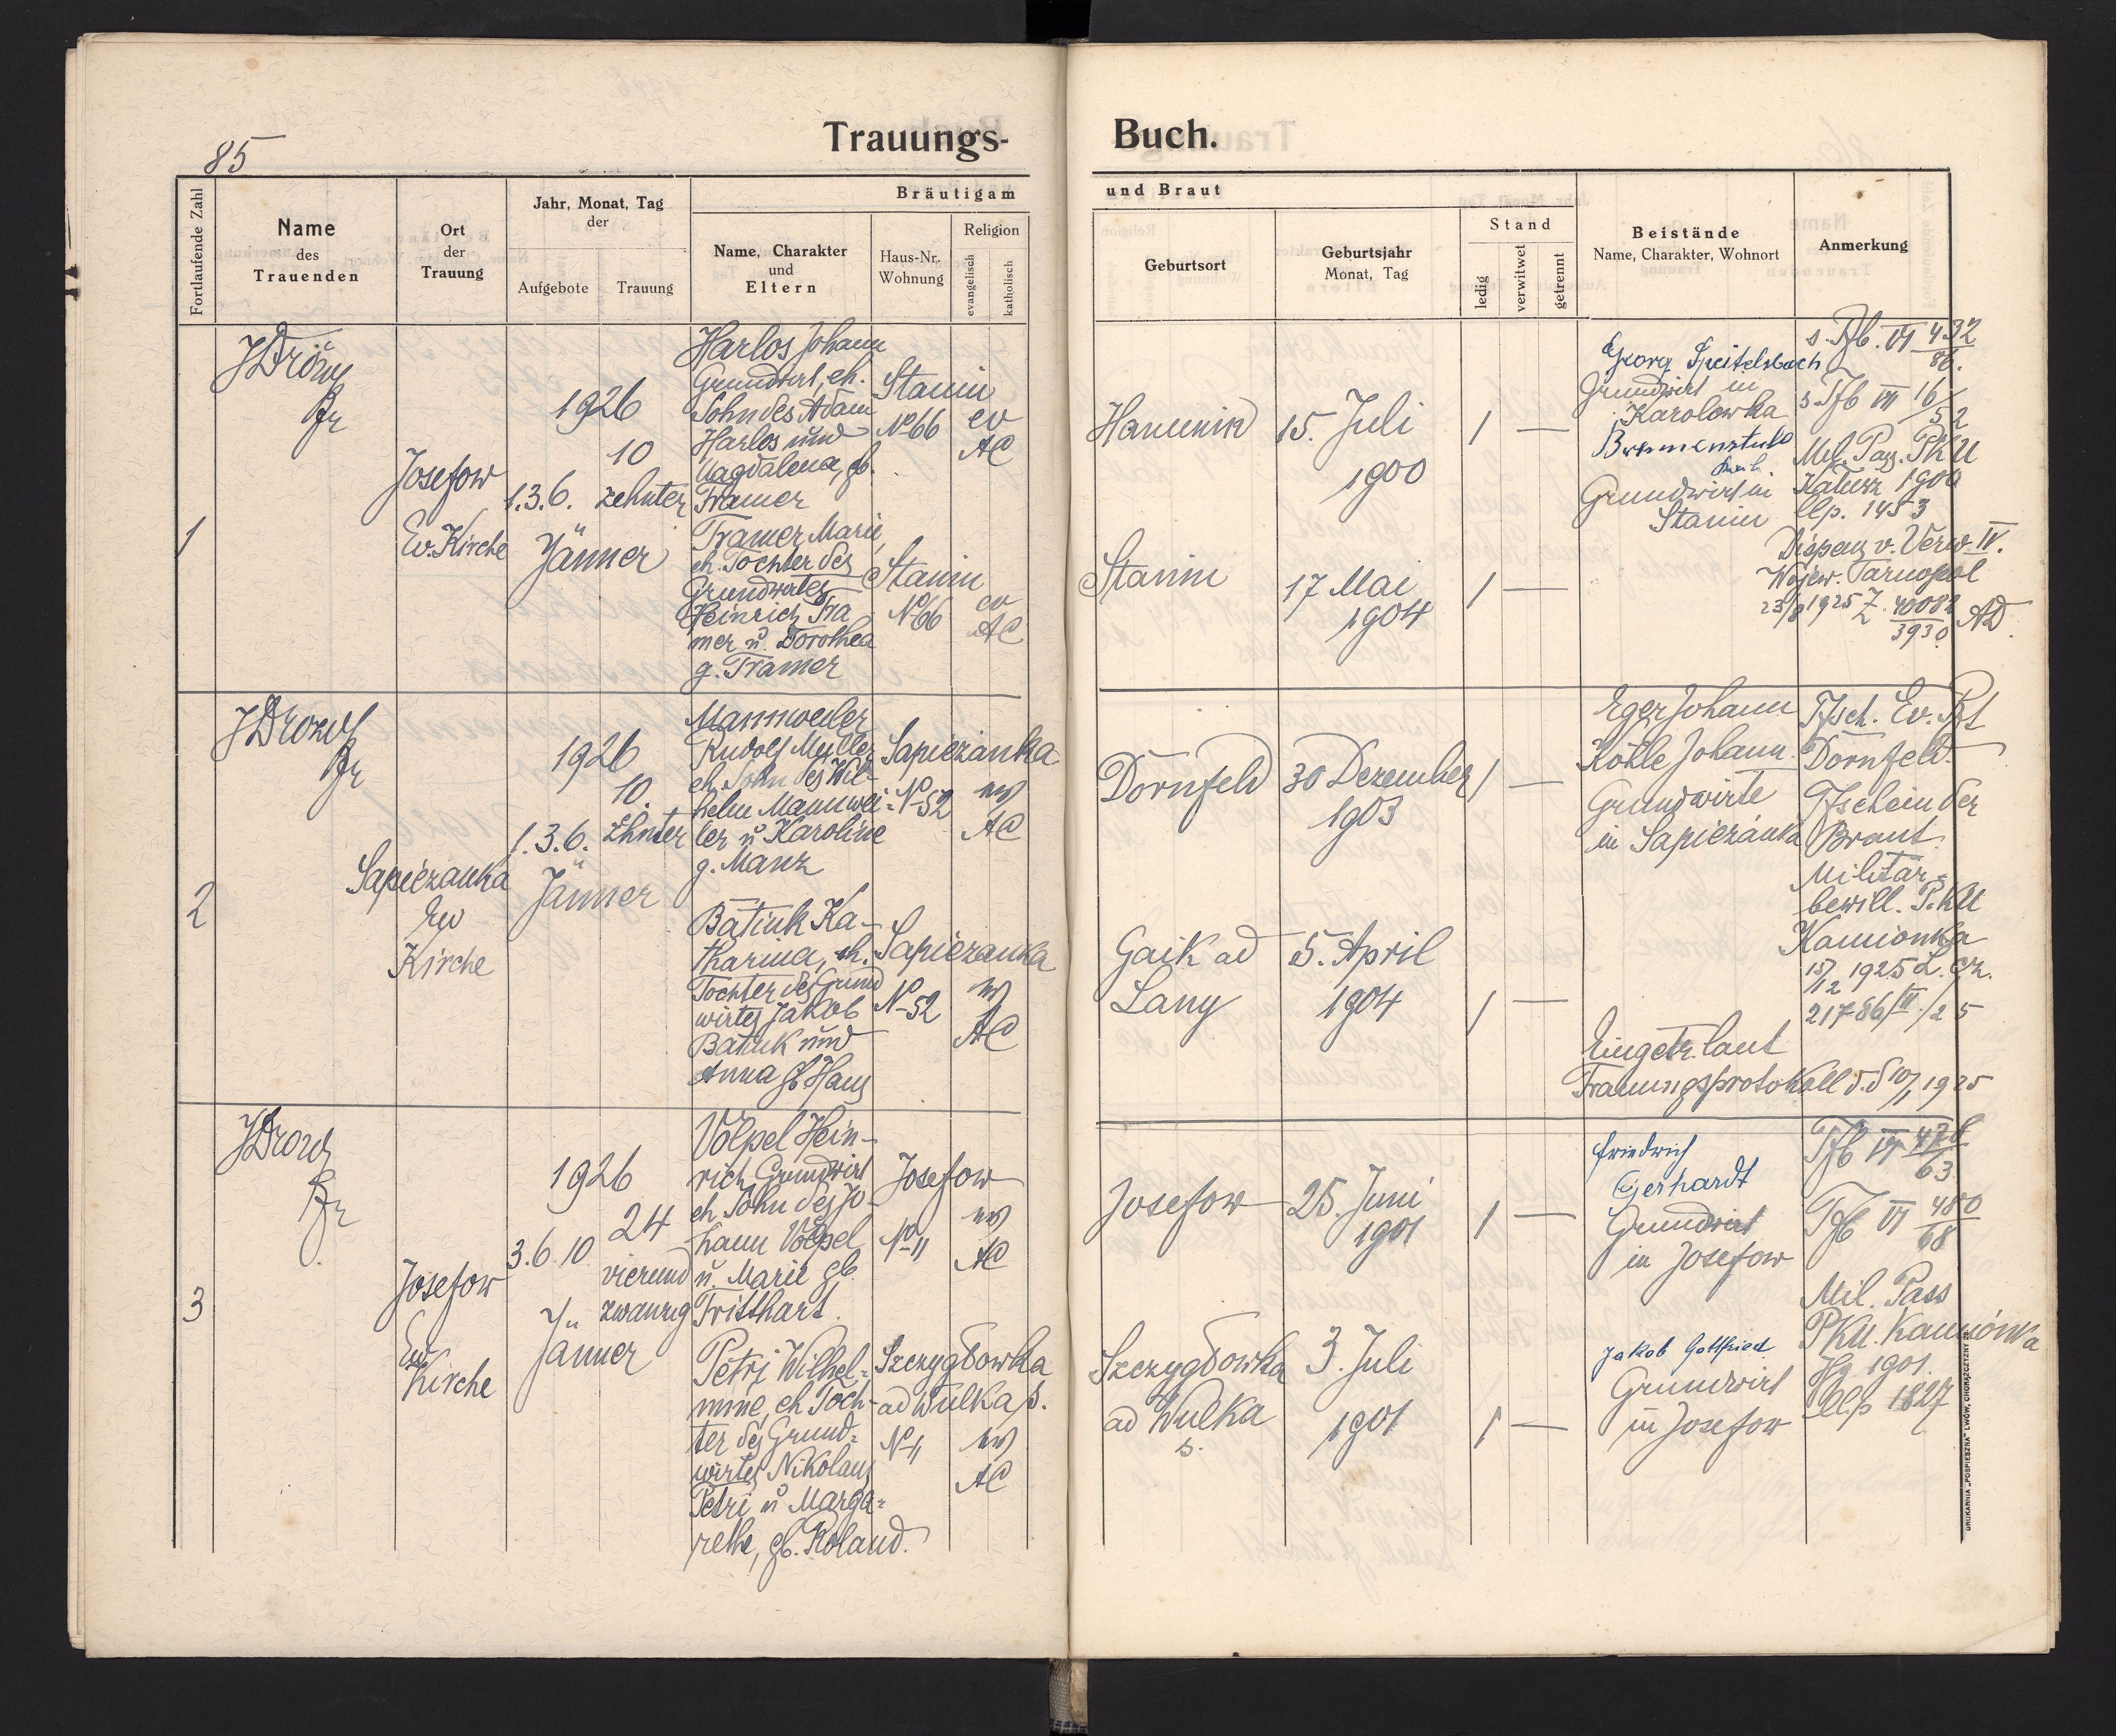 85
Trauungs-
Buch.
Fortlaufende Zahl
Name
des
Trauenden
Ort
der
Trauung
Jahr, Monat, Tag
der
Aufgebote
Trauung
Bräutigam
und Braut
Name, Charakter
und
Eltern
Haus-Nr.
Wohnung
Religion
evangelisch
katholisch
Geburtsort
Geburtsjahr
Monat, Tag
Stand
ledig
verwitwet
getrennt
Beistände
Name, Charakter, Wohnort
Anmerkung
1
Josefow
Ev. Kirche
1926
10
1.3.6. zehnter
Jänner
Harlos Johann
Grundwirt, eh.
Sohn des Adam
Harlos und
Magdalena, gb.
Tramer
Stanin
No 66
ev
AC
Tramer Marie,
eh. Tochter des
Grundwirtes
Heinrich Tra
mer u. Dorothea
g. Tramer
Stanin
No 66
ev
AC
Hanunin
15. Juli
1900
1 —
Stanin
17 Mai
1904
1 —
Georg Speitelsbach
Grundwirt in
Karolowka
Grundwirt in
Stanin
s. Tfb. VI 432
86.
s Tfb VII 16/
52
Mil. Pass. PKU
1900
llp. 1453
Dispens v. Verw. IV.
Wojew. Tarnopol
23/8 1925 Z. 40082
3930
2
Sapiezanka
Ev
Kirche
1926
10.
1.3.6. zehnter
Jänner
Mannweiler
Rudolf Müller
eh. Sohn des Wil-
helm Mannwei-
ler u Karoline
g. Manz
Sapiezanka
No 52
ev
AC
Batiuk Ka-
tharina, eh.
Tochter des Grund
wirtes Jakob
Batiuk und
Anna gb Haus
Sapiezanka
No 52
ev
AC
Dornfeld
30 Dezember
1903
1 —
Gaik ad
Lany
5. April
1904
1 —
Eger Johann
Köhle Johann
Grundwirte
in Sapiezanka
Tfsch. Ev. Pft
Dornfeld.
Tfschein der
Braut.
Militär-
bewill. P.KU
Kamionka
15/12 1925 L. cz.
21786/III/25
Eingetr. laut
Trauungsprotokoll d.d 10/1 1925
3
Josefow
Ev
Kirche
1926
24
3.6.10 vierund
zwanzig
Jänner
Völpel Hein-
rich Grundwirt
eh Sohn des Jo-
hann Völpel
u. Marie gb
Tritthart.
Josefow
No 11
ev
AC
Petri Wilhel-
mine, eh Toch-
ter des Grund-
wirtes Nikolaus
Petri u Marga-
rethe, gb. Roland.
Szczyglowka
ad Wulka s.
No 11
ev
AC
Josefow
25. Juni
1901
1 —
Szczyglowka
ad Wulka
s.
3. Juli
1901
1 —
Friedrich
Gerhardt
Grundwirt
in Josefow
Jakob Gottfried
Grundwirt
in Josefow
Tfb VI 476
63
Tfb VI 480
68
Mil. Pass
PKU. Kamionka
Jg 1901
llp 1827
DRUKARNIA „POSPIESZNA" LWÓW, CHORĄŻCZYZNY